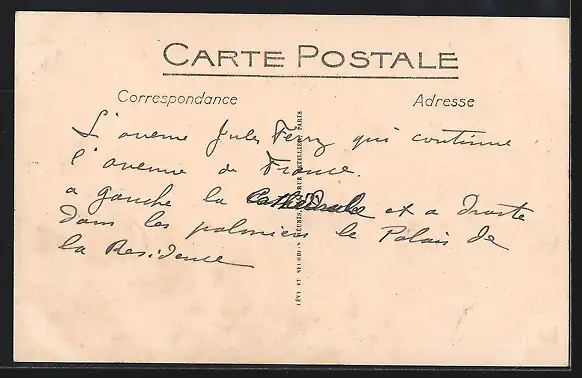 CARTE POSTALE
Correspondance
Adresse
L'avenue Jules Ferry qui continue
l'avenue de France.
a gauche la Cathédrale et a droite
dans les palmiers le Palais de
la Residence
LÉVY ET NEURDEIN RÉUNIS, RUE LETELLIER, PARIS